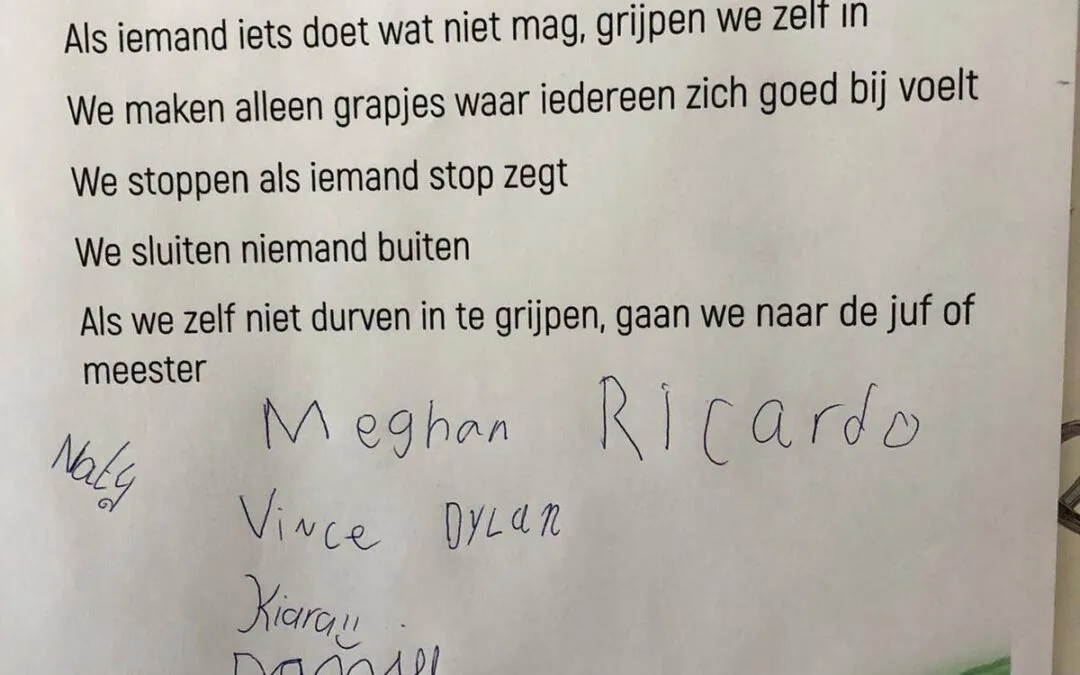 Als iemand iets doet wat niet mag, grijpen we zelf in
We maken alleen grapjes waar iedereen zich goed bij voelt
We stoppen als iemand stop zegt
We sluiten niemand buiten
Als we zelf niet durven in te grijpen, gaan we naar de juf of
meester
Meghan Ricardo
Naty
Vince Dylan
Kiara